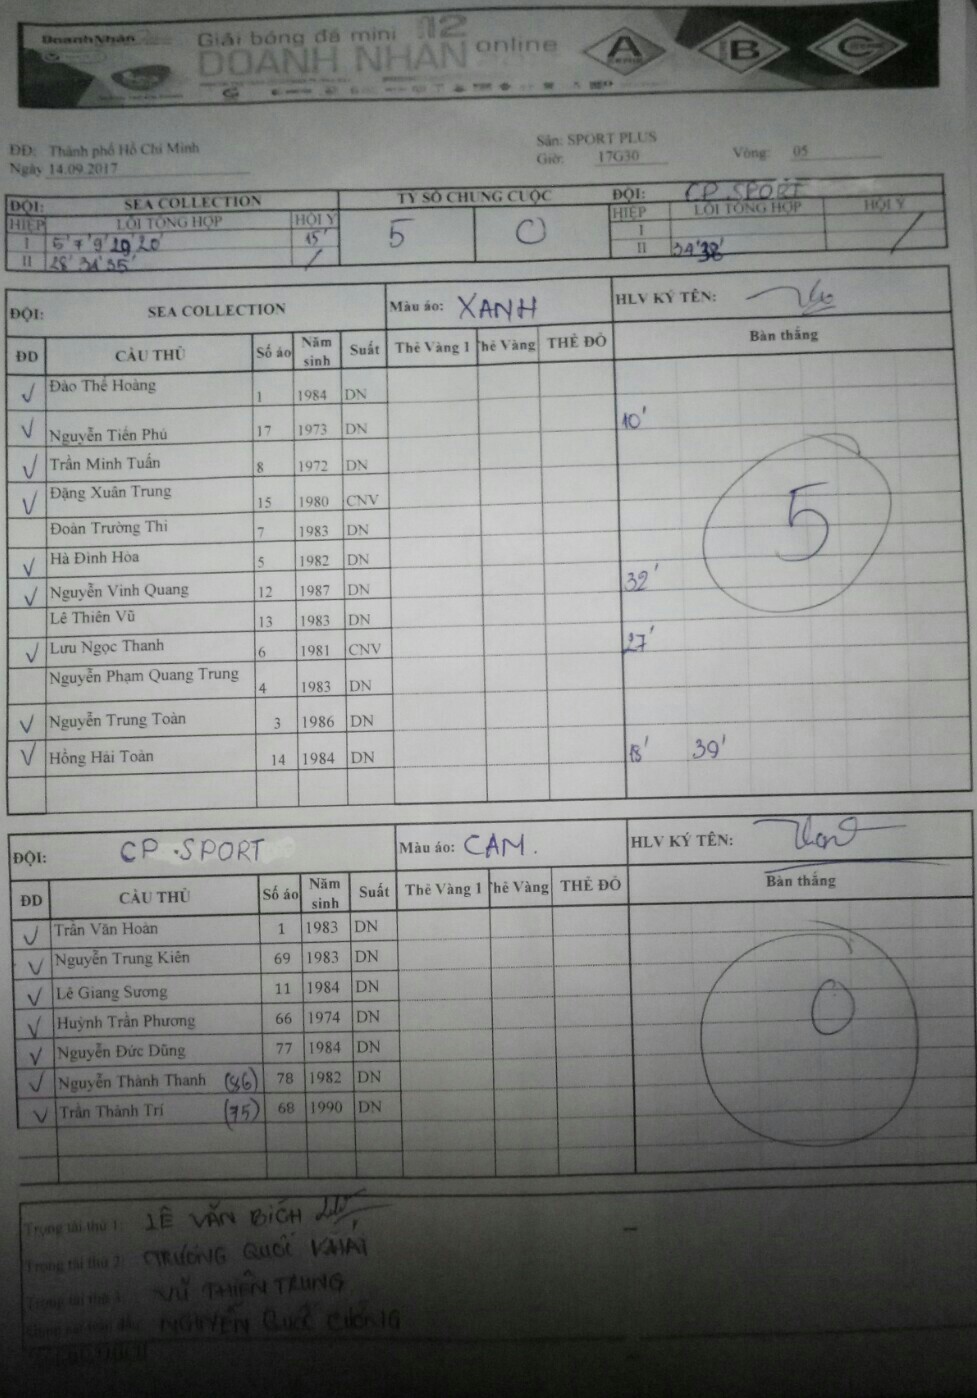 DoanhNhân
Giải bóng đá mini 12
DOANH NHÂN online
A B C
ĐĐ: Thành phố Hồ Chí Minh Sân: SPORT PLUS
Ngày 14.09.2017 Giờ: 17G30 Vòng: 05
ĐỘI: SEA COLLECTION TỶ SỐ CHUNG CUỘC ĐỘI: CP SPORT
HIỆP LỖI TỔNG HỢP HỘI Ý 5 0 HIỆP LỖI TỔNG HỢP HỘI Ý
I 5' 7' 9' 19' 20' 15' I
II 28' 34' 35' / II 34' 38' /
ĐỘI: SEA COLLECTION Màu áo: XANH HLV KÝ TÊN:
ĐD CẦU THỦ Số áo Năm sinh Suất Thẻ Vàng 1 Thẻ Vàng THẺ ĐỎ Bàn thắng
Đào Thế Hoàng 1 1984 DN
Nguyễn Tiến Phú 17 1973 DN 10'
Trần Minh Tuấn 8 1972 DN
Đặng Xuân Trung 15 1980 CNV
Đoàn Trường Thi 7 1983 DN 5
Hà Đình Hòa 5 1982 DN
Nguyễn Vinh Quang 12 1987 DN 32'
Lê Thiên Vũ 13 1983 DN
Lưu Ngọc Thanh 6 1981 CNV 27'
Nguyễn Phạm Quang Trung 4 1983 DN
Nguyễn Trung Toàn 3 1986 DN
Hồng Hải Toàn 14 1984 DN 18' 39'
ĐỘI: CP.SPORT Màu áo: CAM. HLV KÝ TÊN:
ĐD CẦU THỦ Số áo Năm sinh Suất Thẻ Vàng 1 Thẻ Vàng THẺ ĐỎ Bàn thắng
Trần Văn Hoàn 1 1983 DN
Nguyễn Trung Kiên 69 1983 DN
Lê Giang Sương 11 1984 DN 0
Huỳnh Trần Phương 66 1974 DN
Nguyễn Đức Dũng 77 1984 DN
Nguyễn Thành Thanh (86) 78 1982 DN
Trần Thành Trí (75) 68 1990 DN
Trọng tài thứ 1: LÊ VĂN BÍCH
Trọng tài thứ 2: TRƯƠNG QUỐC KHẢI
Trọng tài thứ 3: VŨ THIÊN TRUNG
NGUYỄN QUỐC CƯỜNG